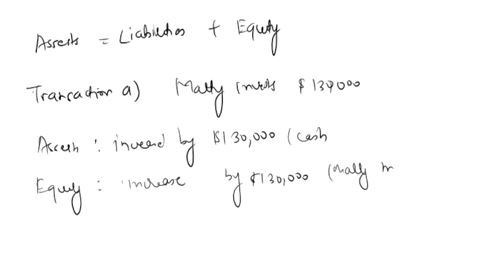 Assets = Liabilities + Equity
Transaction a) Matty invests $130000
Assets : increased by $130,000 (cash
Equity : increase by $130,000 (Matty in